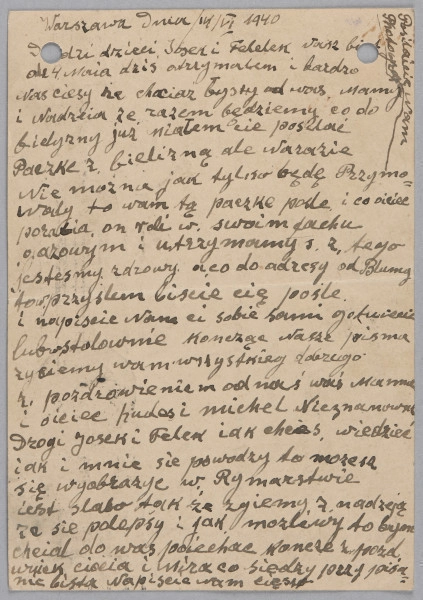 Warszawa Dnia 14/VI 1940
Drodzi dzieci Josek i Felelek Wasz
od 4 Maia dziś otrzymalem i bardzo
nas ciesy że chociaż łysty od was mamy
i Nadzeia że razem będziemy, co do
bielyzny już miałem cie posłać
Paczkę z bielizną ale Narazie
Nie można jak tylko będę Przymo-
waly to wam tą paczkę poślę, i co oiciec
porabia, on robi w swoim fachu
gazowym i utrzymamy s. z. tego
jestesmy zdrowy, a co do adresy od Blumy
to w przyslem liscie cię pośle.
i napiscie Nam ci sobie sami gotuiecie
lub stolownie Koncząc Nasze pisma
życiemy wam wszystkieg dobrego
z. pozdrowieniem od nas waś Mamma
i oiciec Hudes i michel Nieznanowic
Drogi Josek i Felek iak chces, wiedzieć
iak i mnie sie powodzy to możesz
się wyobrazyc w Rymarstwie
iest slabo tak że zyiemy z nadzeją
że się polepsy i jak mozlewy to bym
chcial do was poiechac koncze z pozd,
wuiek ciocia i Mira co siedzy przy pisa-
nie lista Napiscie nam cięsto
Poslaicie Nam
Photografie